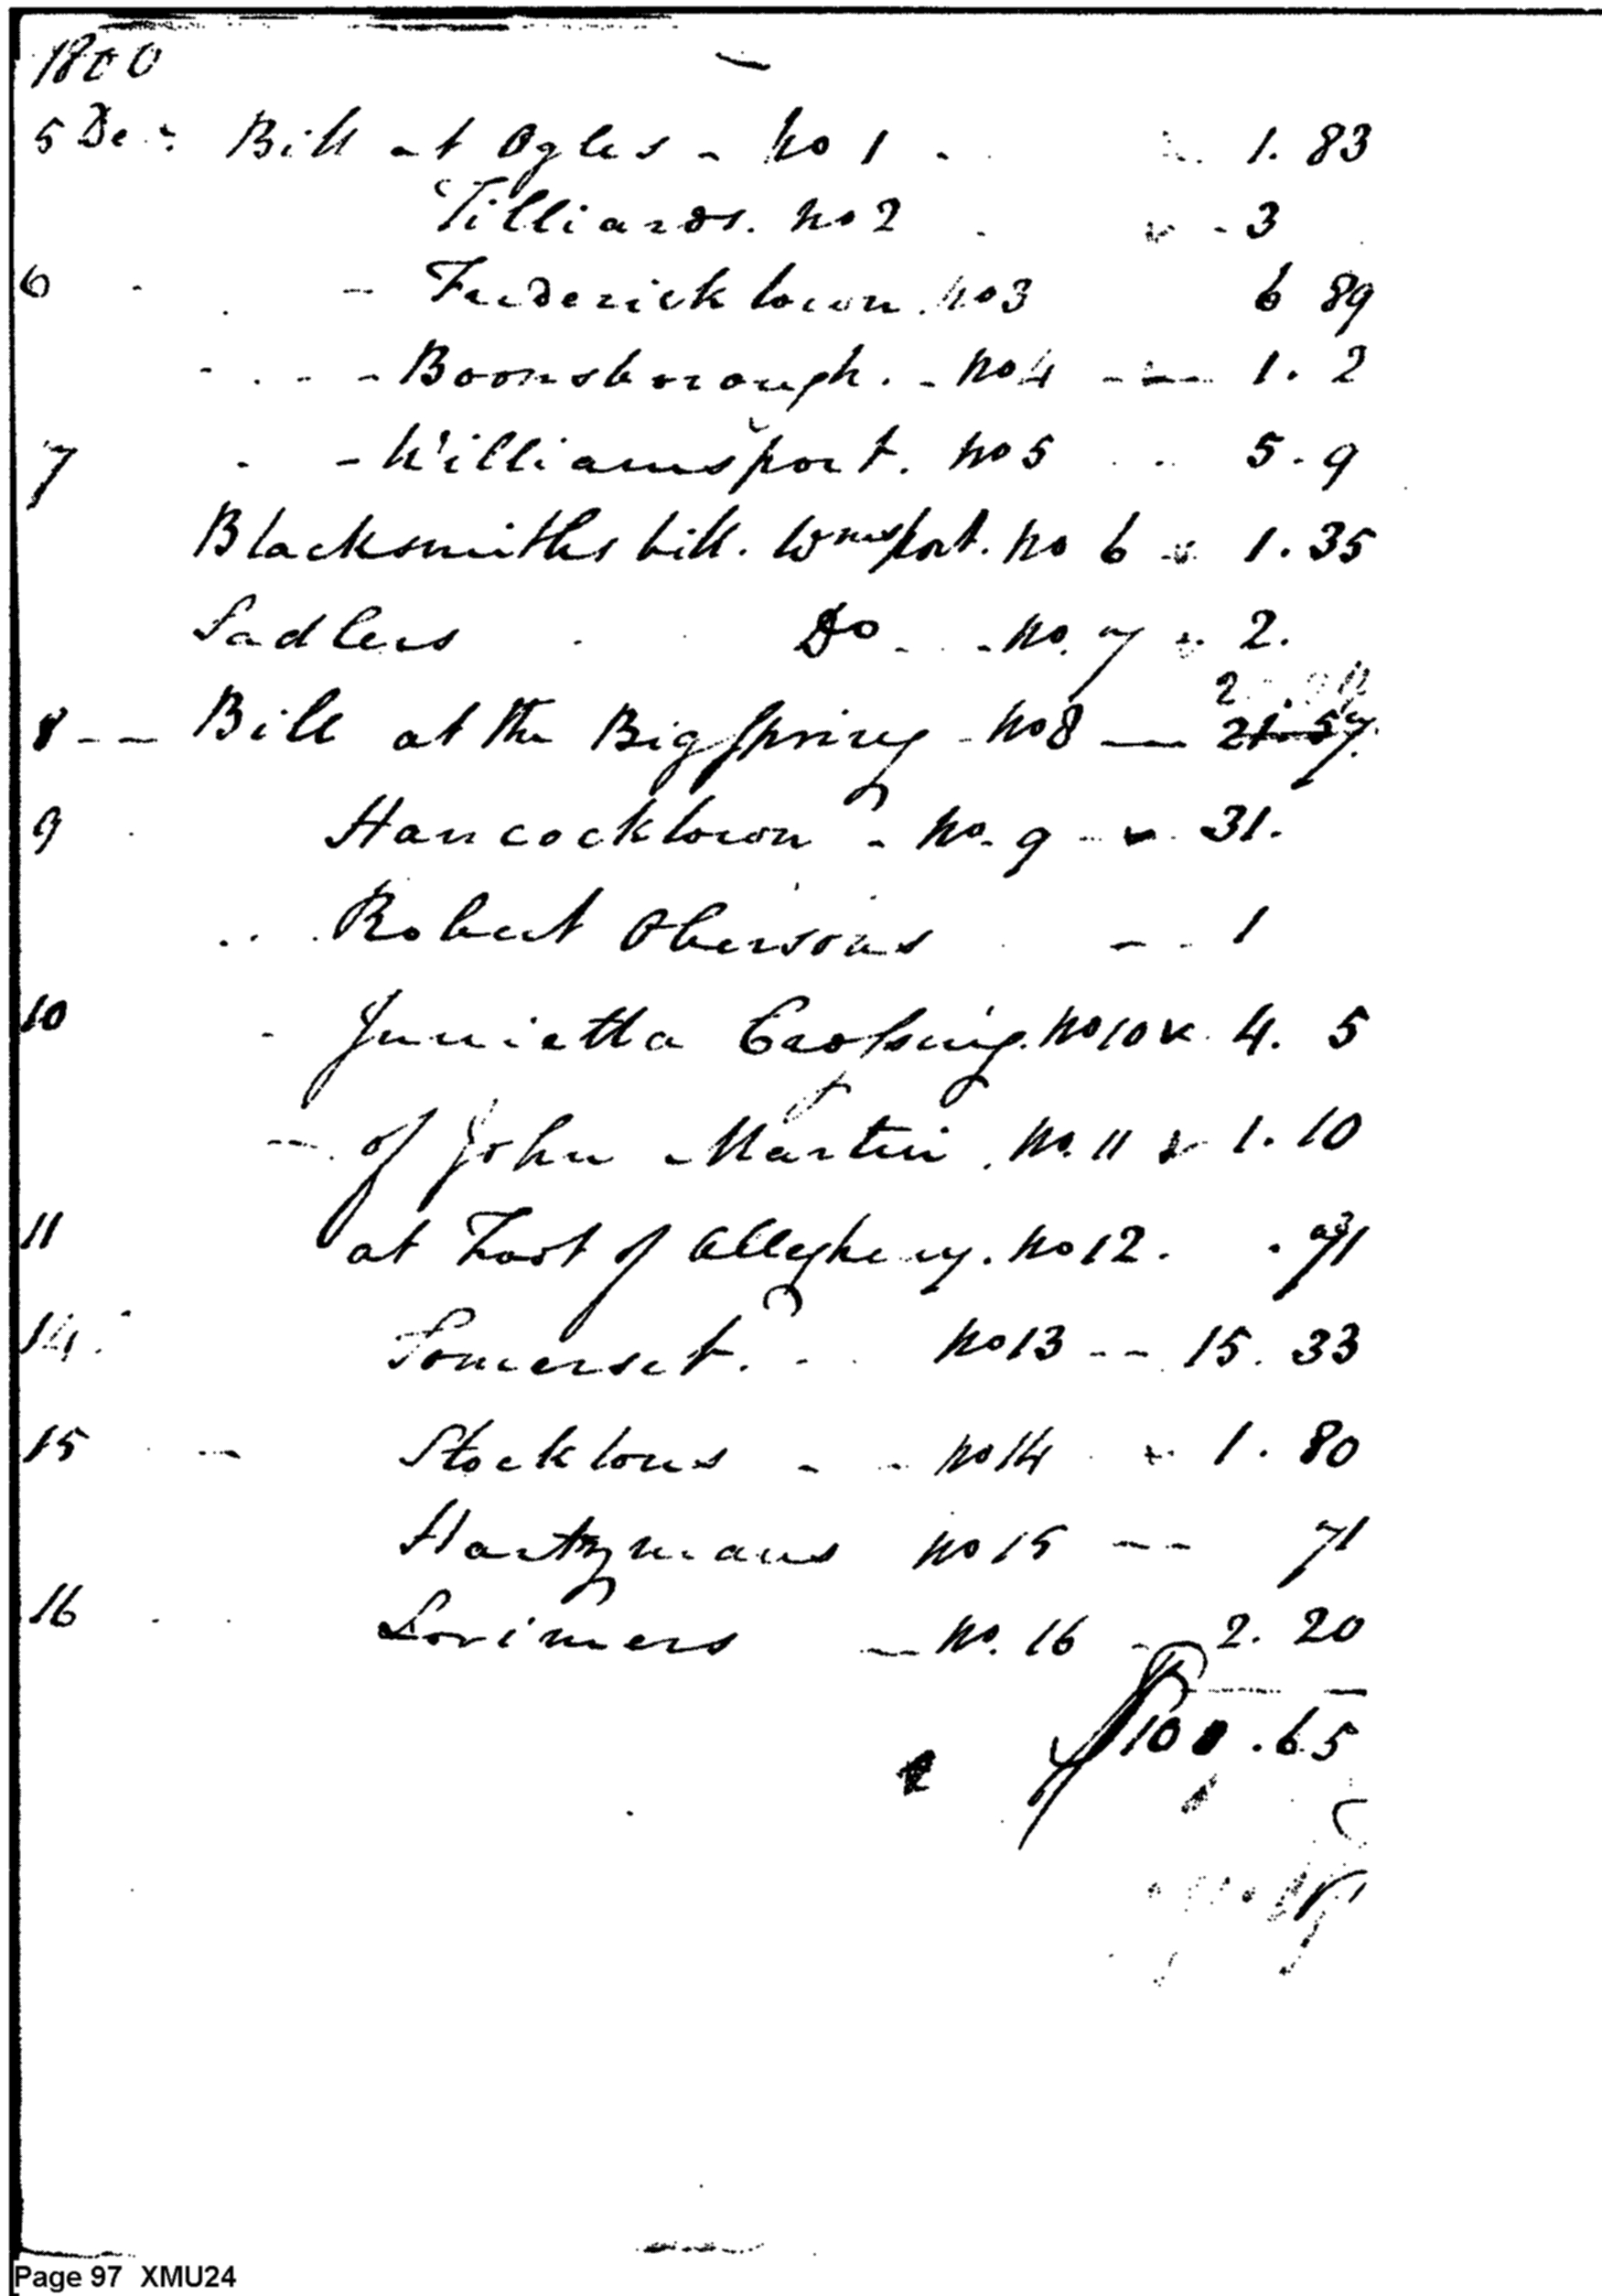 1800
5 Decr. Bill at Ogles - no 1 - 1. 83
Tilliards. no 2 - 3
6 - Fredericktown. no 3 6 89
- Boonsborough. - no 4 --- 1. 2
7 - Williamsport. no 5 5. 9
Blacksmiths bill. Wmsport. no 6 1. 35
Sadlers Do - no. 7 2.
2
8 -- Bill at the Big Spring - no 8 — 21. 57
9 Hancocktown - no. 9 - 31.
Robert - 1
10 - Junietta Crossing. no 10 4. 5
-- of John Martin. no. 11 1. 10
11 at Foot of Allegheny. no 12. . 71
14 Somerset. - no 13 -- 15. 33
15 - Stocktons - - no 14 1. 80
Hartzmans no 15 -- 71
16 Lorimers — no. 16 - 2. 20
.65
Page 97 XMU24